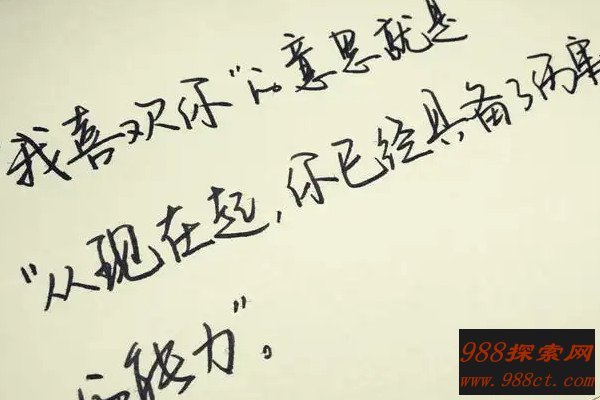 我喜欢你"的意思就是
"从现在起,你已经具备了伤害
的能力"。
988探索网
www.988ct.com